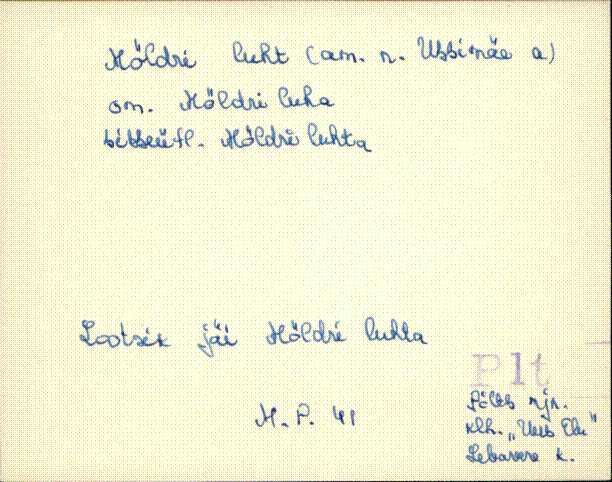 Möldri luht (am. n. Ussimäe a)
om. Möldri luha
sisseütl. Möldri luhta
Lootsik jäi Möldri luhta
Plt
M. P. 41
Põlts rjn.
klh. „Uus Elu"
Lebavere k.